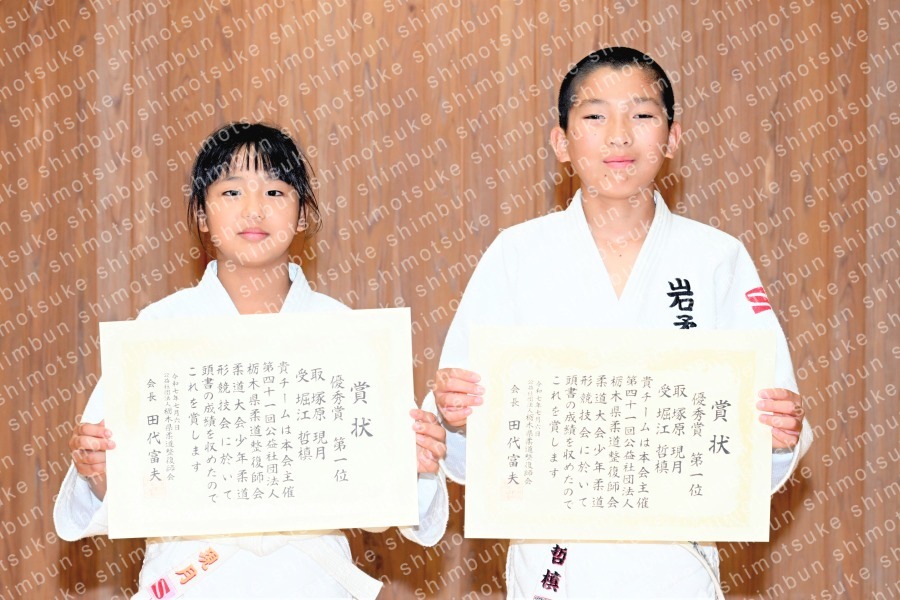 賞状
優秀賞 第一位
取 塚原 現月
受 堀江 哲槙
貴チームは本会主催
第四十一回公益社団法人
栃木県柔道整復師会
柔道大会少年柔道
形競技会に於いて
頭書の成績を収めたので
これを賞します
令和七年七月六日
公益社団法人栃木県柔道整復師会
会長 田代富夫
現月
S
賞状
優秀賞 第一位
取 塚原 現月
受 堀江 哲槙
貴チームは本会主催
第四十一回公益社団法人
栃木県柔道整復師会
柔道大会少年柔道
形競技会に於いて
頭書の成績を収めたので
これを賞します
令和七年七月六日
公益社団法人栃木県柔道整復師会
会長 田代富夫
岩
哲槙
shimotsuke shimbun